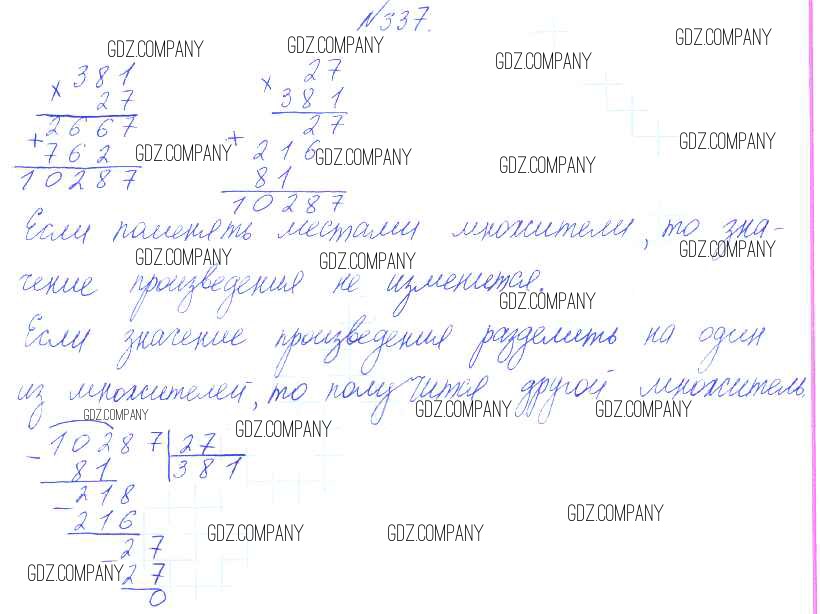 №337.
GDZ.COMPANY GDZ.COMPANY GDZ.COMPANY GDZ.COMPANY
× 381
27
2667
+ 762
10287
× 27
381
27
+ 216
81
10287
GDZ.COMPANY GDZ.COMPANY GDZ.COMPANY GDZ.COMPANY
Если поменять местами множители, то зна-
GDZ.COMPANY GDZ.COMPANY GDZ.COMPANY
чение произведения не изменится.
GDZ.COMPANY
Если значение произведения разделить на один
из множителей, то получится другой множитель.
GDZ.COMPANY GDZ.COMPANY GDZ.COMPANY GDZ.COMPANY
- 10287 | 27
81 | 381
- 218
216
- 27
27
0
GDZ.COMPANY GDZ.COMPANY GDZ.COMPANY
GDZ.COMPANY